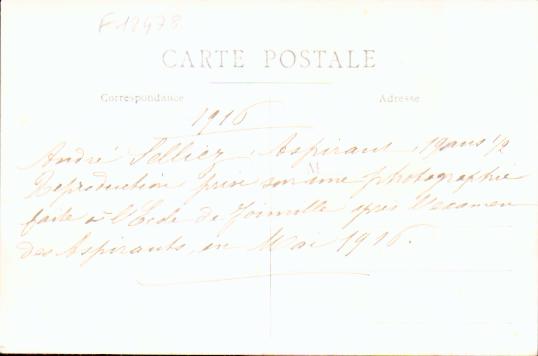 F 12478
CARTE POSTALE
Correspondance
Adresse
1916
André Telliez, Aspirant, 19 ans 1/2
Reproduction prise sur une photographie
faite à l'Ecole de Joinville après l'examen
des Aspirants, en Mai 1916.